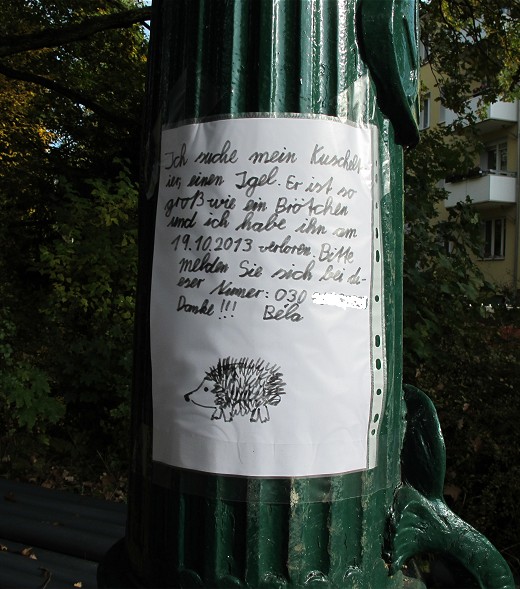 Ich suche mein Kuschelt
ier, einen Igel. Er ist so
groß wie ein Brötchen
und ich habe ihn am
19.10.2013 verloren. Bitte
melden Sie sich bei di-
eser Numer: 030
Danke!!! Béla